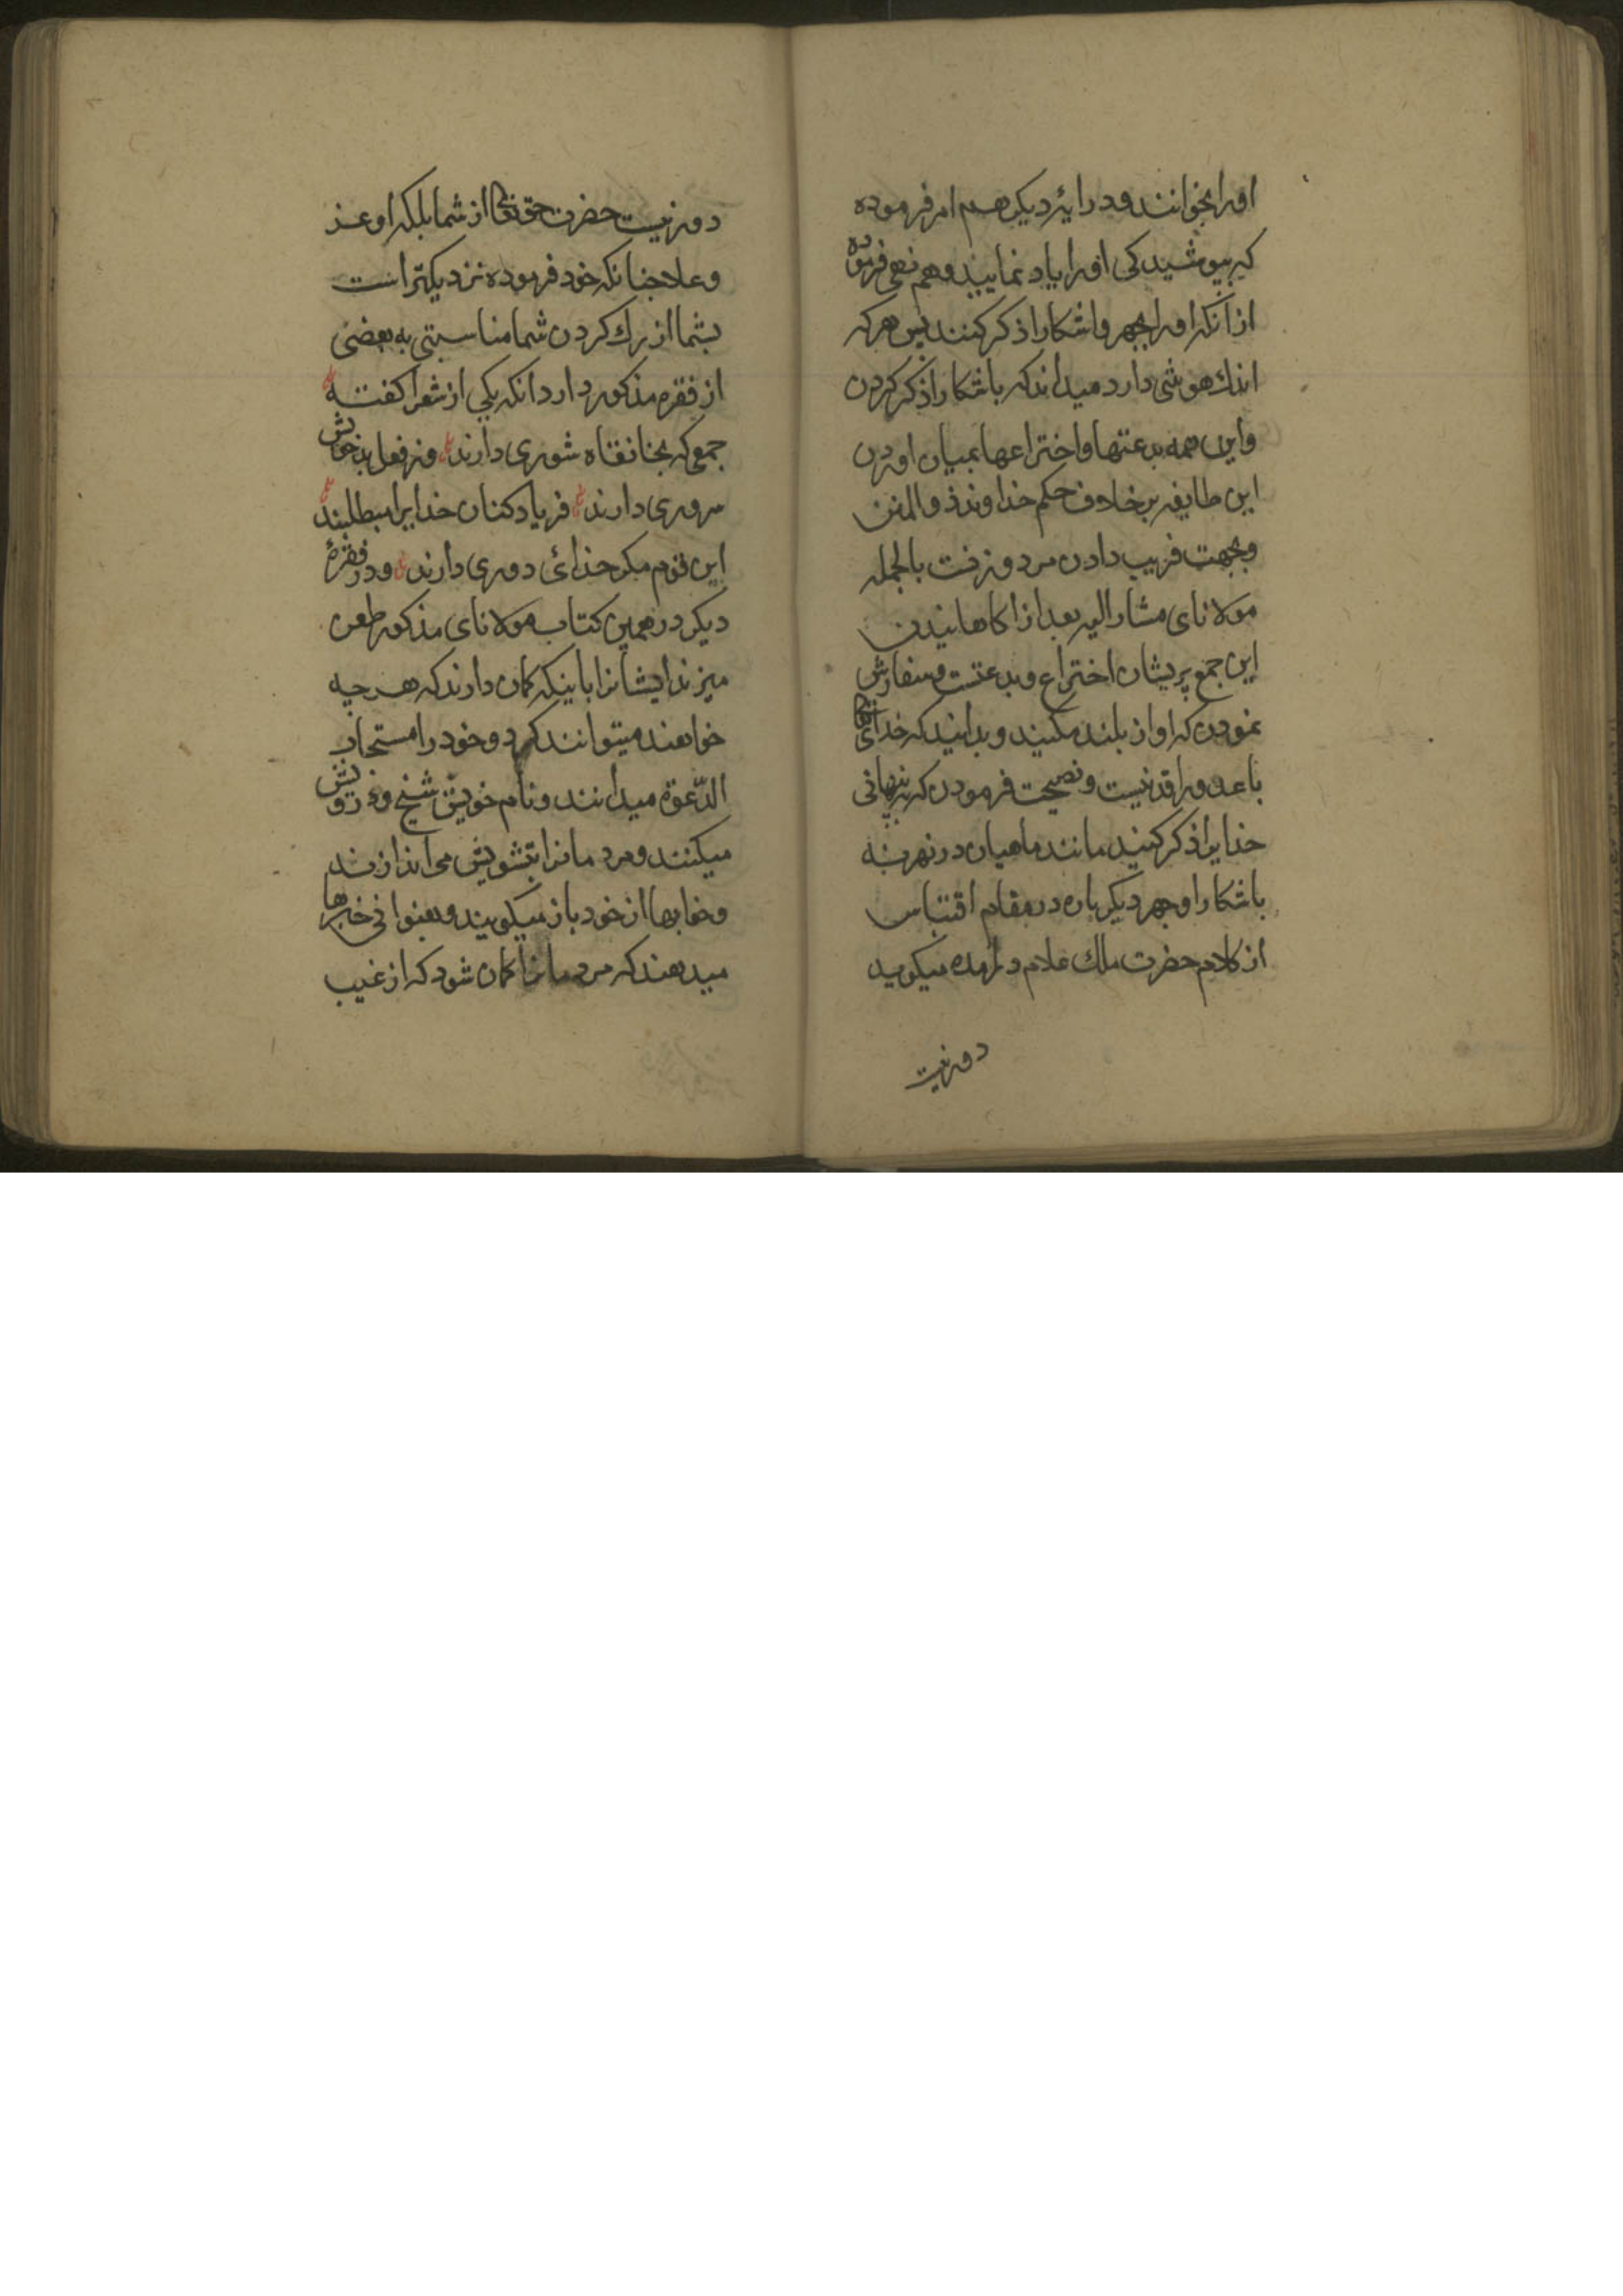 اورا بخوانند و در ایهٔ دیکر هم امر فرموده
که بپوشیدکی اورا یاد نمایند و هم نهی فرموده
از آنکه اورا بجهر و اشکارا ذکر کنند پس هرکه
اندك هوشی دارد میداند که باشکارا ذکر کردن
و این همه بدعتها و اختراعها بمیان اوردن
این طایفه بر خلاف حکم خداوند ذو المنن
و بجهت فریب دادن مرد و زنست بالجمله
مولانای مشار الیه بعد از اکاهانیدن
این جمع پریشان اختراع و بدعتست و سفارش
نمودن که اواز بلند مکنید و بدانید که خدای تعالی
باعد و راقد نیست و نصیحت فرمودن که پنهانی
خدایرا ذکر کنید مانند ماهیان در نهر نه
باشکارا و جهر دیکر باره در مقام اقتباس
از کلام حضرت ملك علام درامده میکوید
دور نیست
دور نیست حضرت حق تعالی از شما بلکه او عز
و علا چنانکه خود فرموده نزدیکتر است
بشما از رك کردن شما مناسبتی به بعضی
از فقره مذکوره دارد انکه یکی از شعرا کفته
جمعی که بخانقاه شوری دارند وز فعل بد خویش
سروری دارند فریاد کنان خدایرا میطلبند
این قوم مکر خدائی دوری دارند و در فقرهٔ
دیکر در همین کتاب مولانای مذکور طعن
میزند ایشانرا باینکه کمان دارند که هر چه
خواهند میتوانند کرد و خود را مستجاب
الدّعوة میدانند و نام خویش شیخ و درویش
میکنند و مردمانرا بتشویش می اندازند
و خوابها از خود باز میکویند و بعنوانی خبرها
میدهند که مردمانرا کمان شود که از غیب